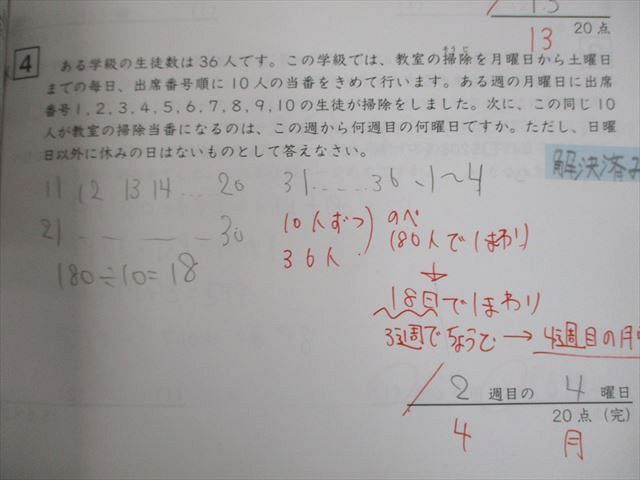 13
20点
13
4
ある学級の生徒数は36人です。この学級では、教室の掃除を月曜日から土曜日
までの毎日、出席番号順に10人の当番をきめて行います。ある週の月曜日に出席
番号1,2,3,4,5,6,7,8,9,10の生徒が掃除をしました。次に、この同じ10
人が教室の掃除当番になるのは、この週から何週目の何曜日ですか。ただし、日曜
日以外に休みの日はないものとして答えなさい。
解決済み
11 12 13 14 ... 20 31......36、1〜4
21 ... 30
180÷10=18
10人ずつ
36人
のべ
180人で1まわり
18日で1まわり
3週でちょうど→4週目の月
2週目の4曜日
20点(完)
4 月